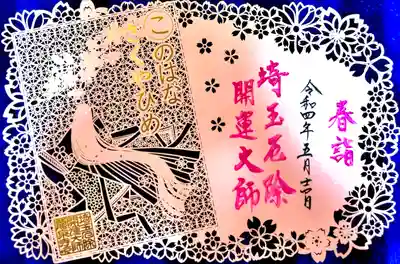 このはな
さくやひめ
春詣
令和四年五月十二日
埼玉厄除
開運大師